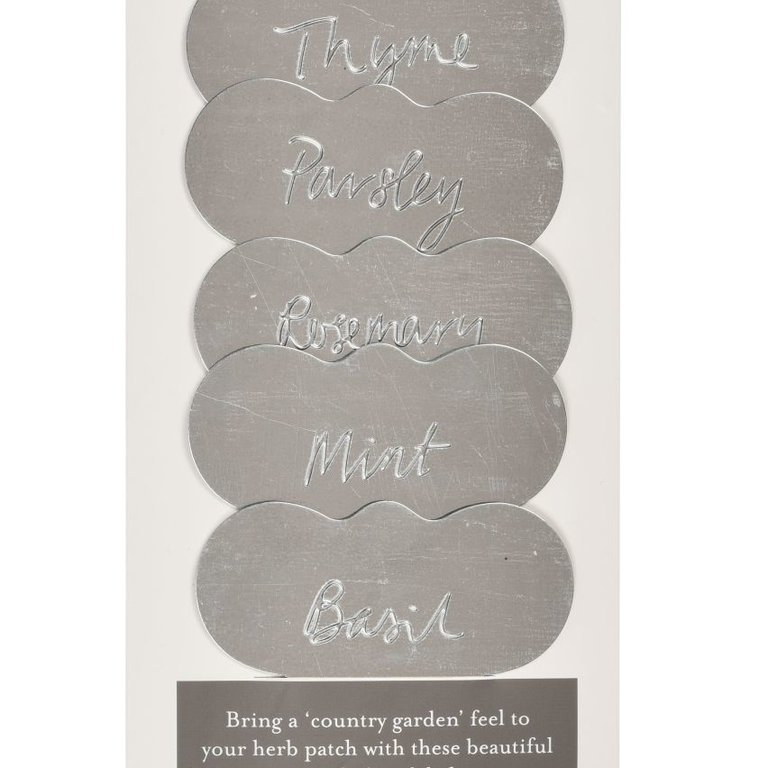 Thyme
Parsley
Rosemary
Mint
Basil
Bring a ‘country garden’ feel to
your herb patch with these beautiful